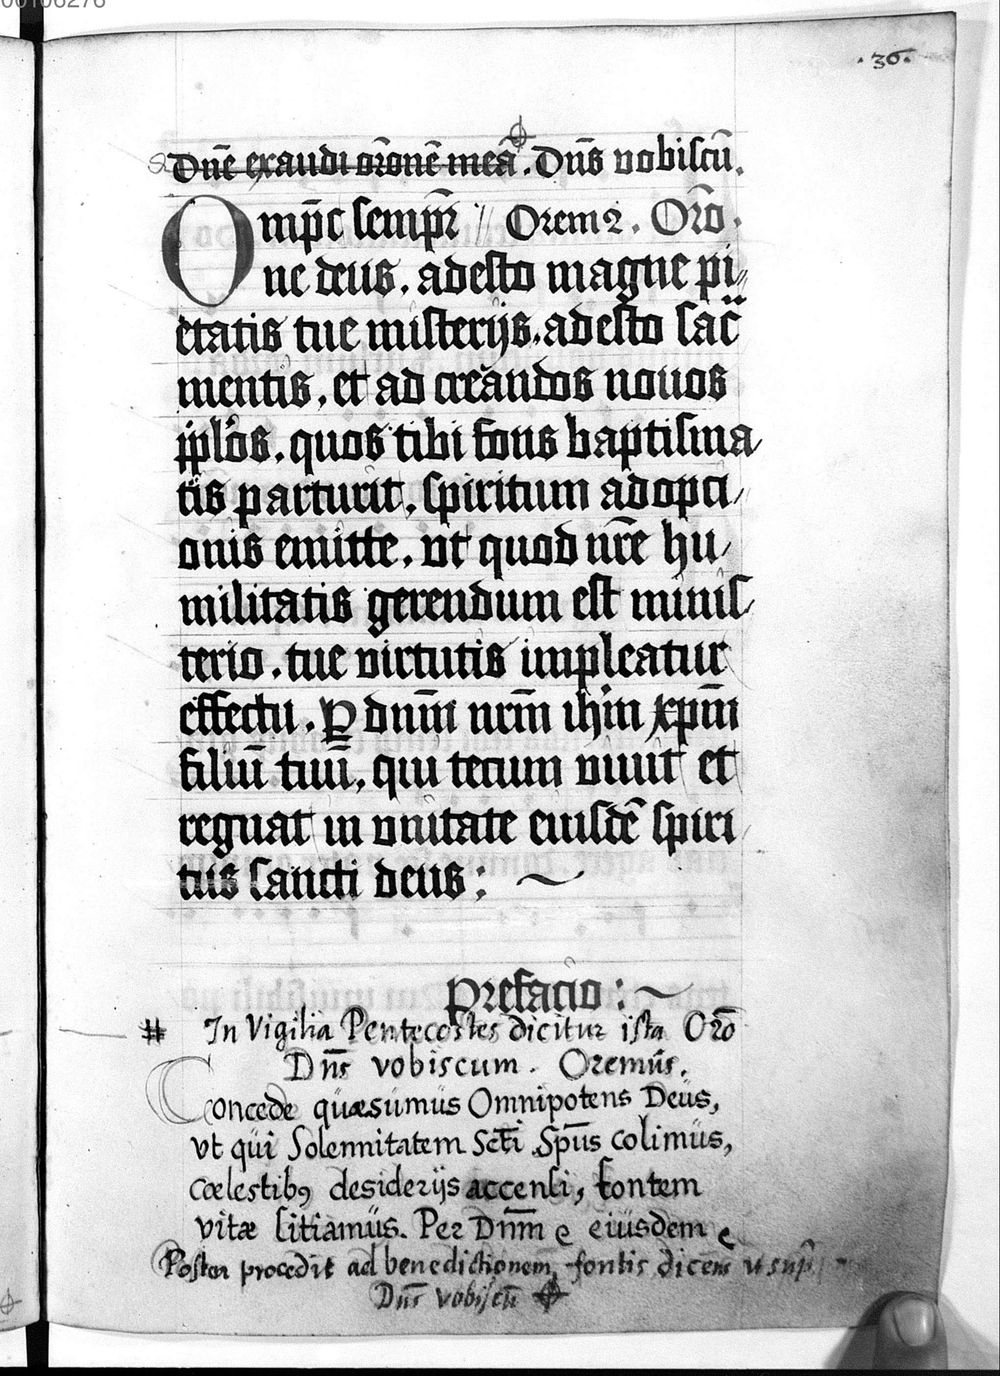 00106276
.36.
Dn̄e exaudi or̄onē meā. Dn̄s vobiscū.
Omp̄c semp̄r // Oremꝰ. Or̄o.
ne deus. adesto magne pi
etatis tue misterijs. adesto sac̄
mentis. et ad creandos nouos
pp̄los. quos tibi fons baptisma
tis parturit. spiritum adopci
onis emitte. vt quod nr̄e hu
militatis gerendum est minis
terio. tue virtutis impleatur
effectu. Ꝑ dn̄m nr̄m ih̄m xp̄m
filiū tuū, qui tecum viuit et
regnat in vnitate eiusdē spiri
tus sancti deus: ~
prefacio: ~
# In Vigilia Pentecostes dicitur ista Orō
Dn̄s vobiscum. Oremus.
Concede quæsumus Omnipotens Deus,
vt qui Solennitatem Sc̄ti Sp̄us colimus,
cœlestibꝰ desiderijs accensi, fontem
vitæ sitiamus. Per Dn̄m e eiusdem e
Postea procedit ad benedictionem fontis dicens ut sup̄
Dn̄s vobiscū